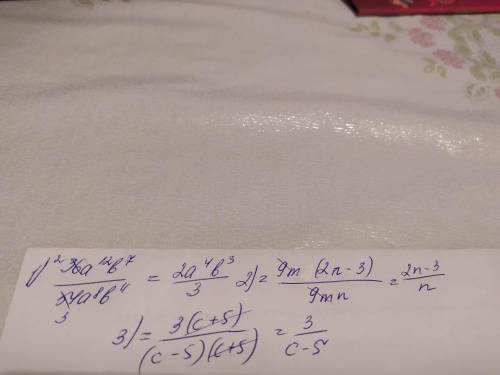 1) ²36a¹²b⁷ / 54₃a⁸b⁴ = 2a⁴b³ / 3 2) = 9m (2n-3) / 9mn = 2n-3 / n
3) = 3(c+5) / (c-5)(c+5) = 3 / c-5